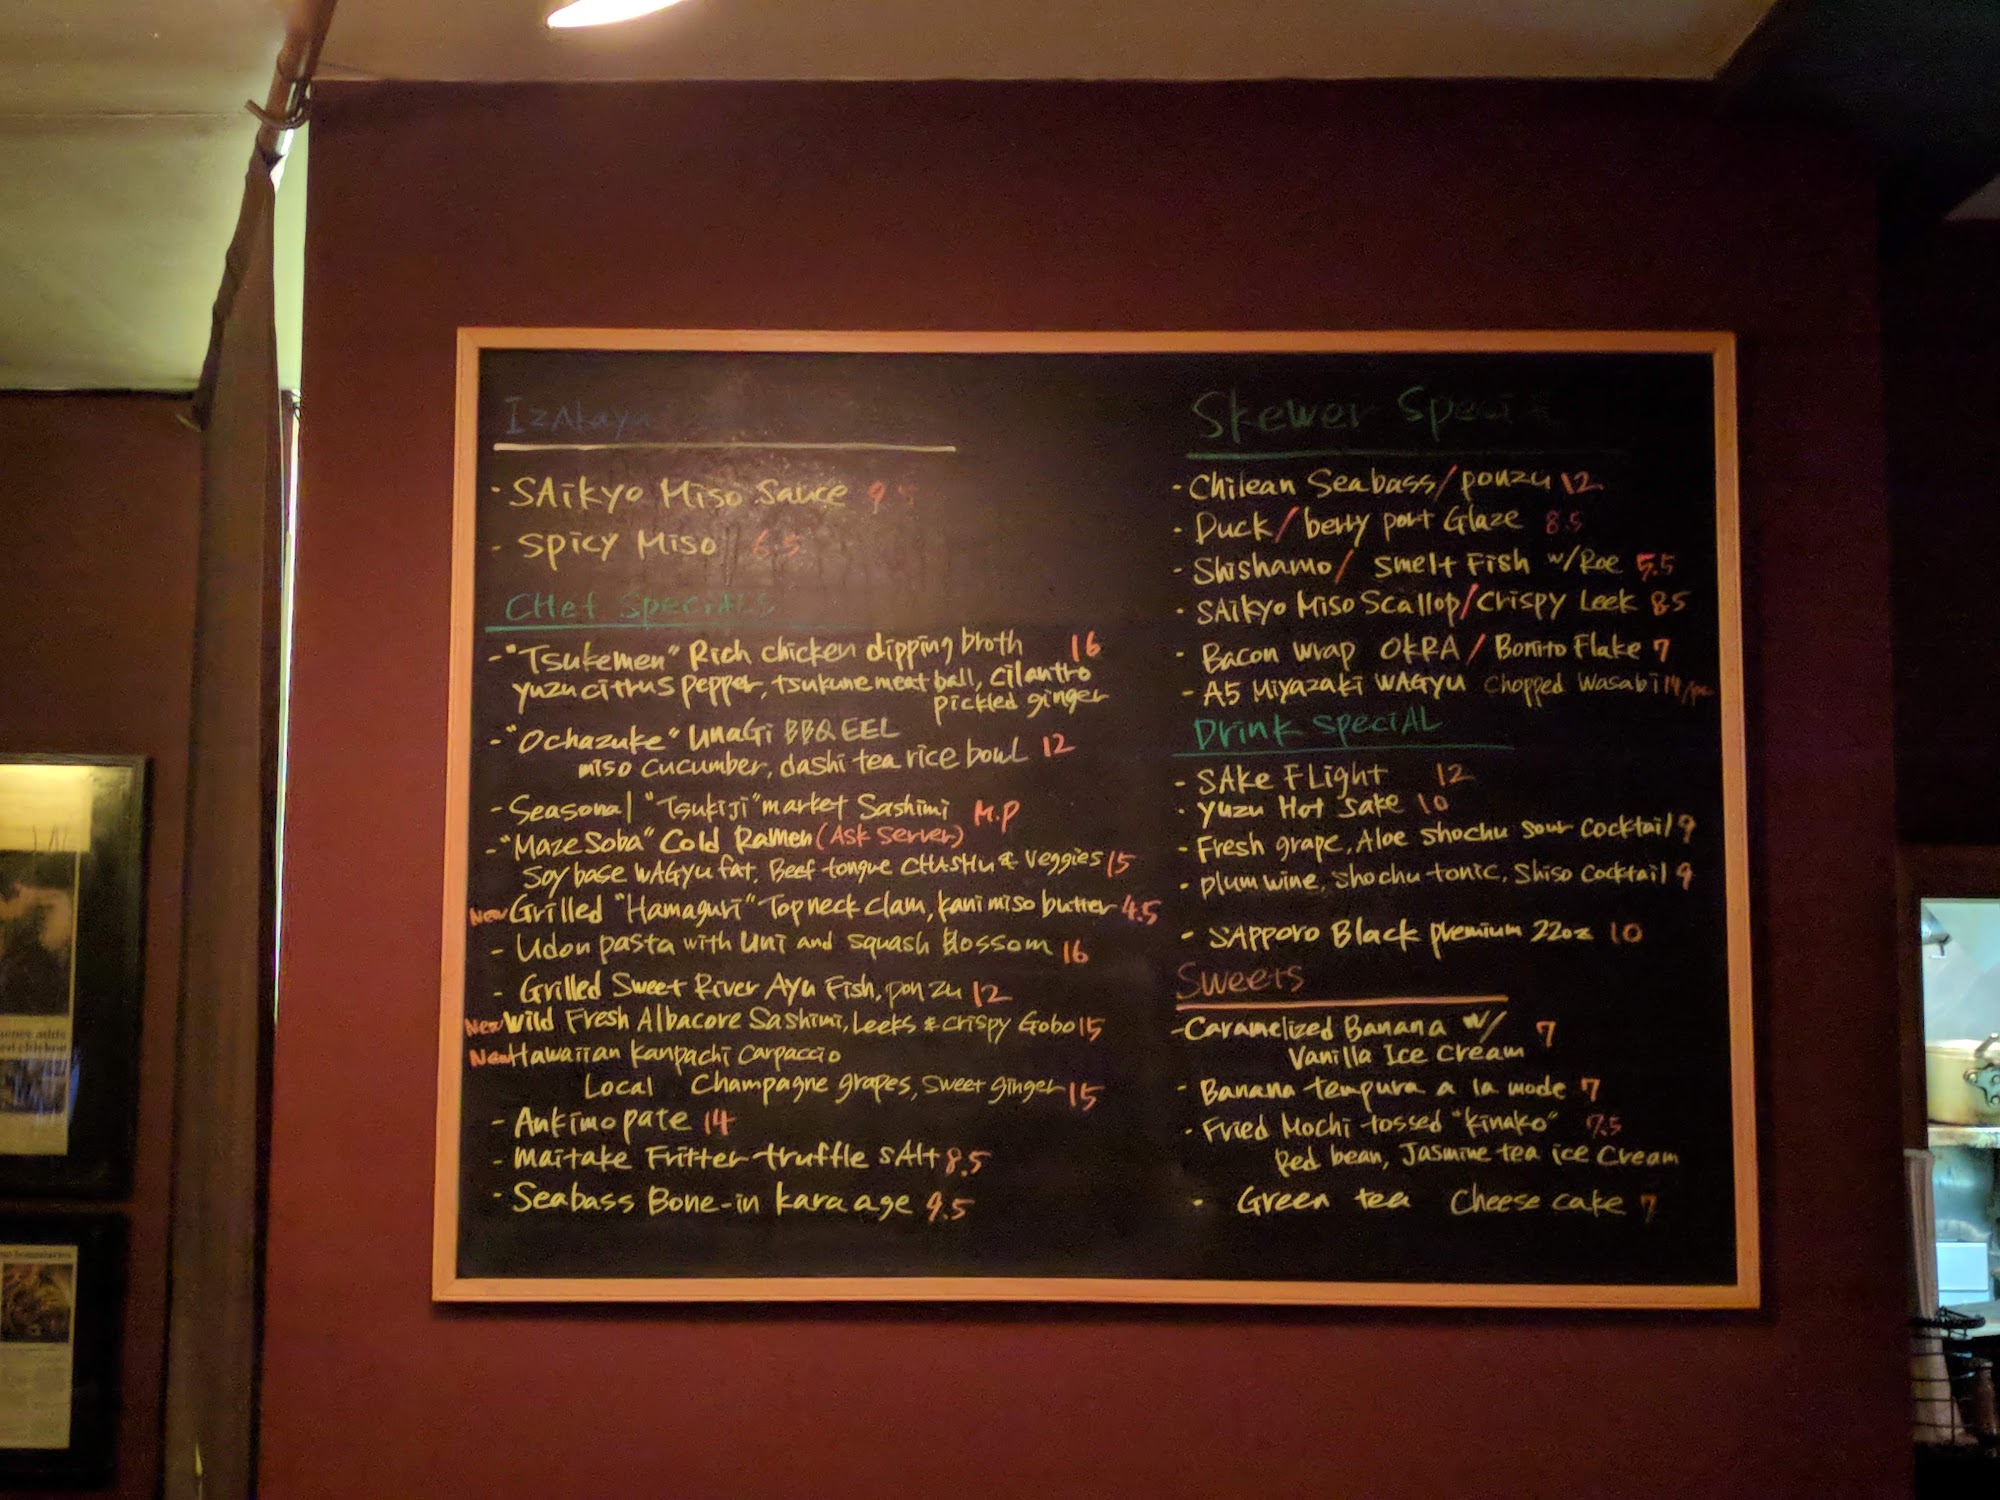 Izakaya
- SAikyo Miso Sauce 9.5
- Spicy Miso 6.5
CHef SpeciALS
- "Tsukemen" Rich chicken dipping broth 16
yuzu citrus pepper, tsukune meat ball, cilantro
pickled ginger
- "Ochazuke" UnaGi BBQ EEL
miso cucumber, dashi tea rice bowl 12
- Seasonal "Tsukiji" market Sashimi M.P
- "Maze Soba" Cold Ramen (Ask Server)
Soy base WAGyu fat, Beef tongue CHASHU & Veggies 15
New Grilled "Hamaguri" Top neck clam, kani miso butter 4.5
- Udon pasta with Uni and squash blossom 16
- Grilled Sweet River Ayu Fish, ponzu 12
New Wild Fresh Albacore Sashimi, Leeks & crispy Gobo 15
New Hawaiian kanpachi carpaccio
Local Champagne grapes, sweet ginger 15
- Ankimo pate 14
- Maitake Fritter truffle sAlt 8.5
- Seabass Bone-in kara age 9.5
Skewer Special
- Chilean Seabass/ponzu 12
- Duck/berry port Glaze 8.5
- Shishamo/ Smelt Fish w/Roe 5.5
- SAikyo Miso Scallop/Crispy Leek 8.5
- Bacon wrap OKRA / Bonito Flake 7
- A5 Miyazaki WAGyU Chopped Wasabi 14/pc
Drink SpeciAL
- SAke FLight 12
- Yuzu Hot Sake 10
- Fresh grape, Aloe Shochu Sour Cocktail 9
- plum wine, shochu tonic, Shiso Cocktail 9
- SAPPORO Black premium 22oz 10
Sweets
- Caramelized Banana w/ 7
Vanilla Ice Cream
- Banana tempura a la mode 7
- Fried Mochi tossed "kinako" 7.5
Red bean, Jasmine tea ice Cream
- Green tea Cheese cake 7